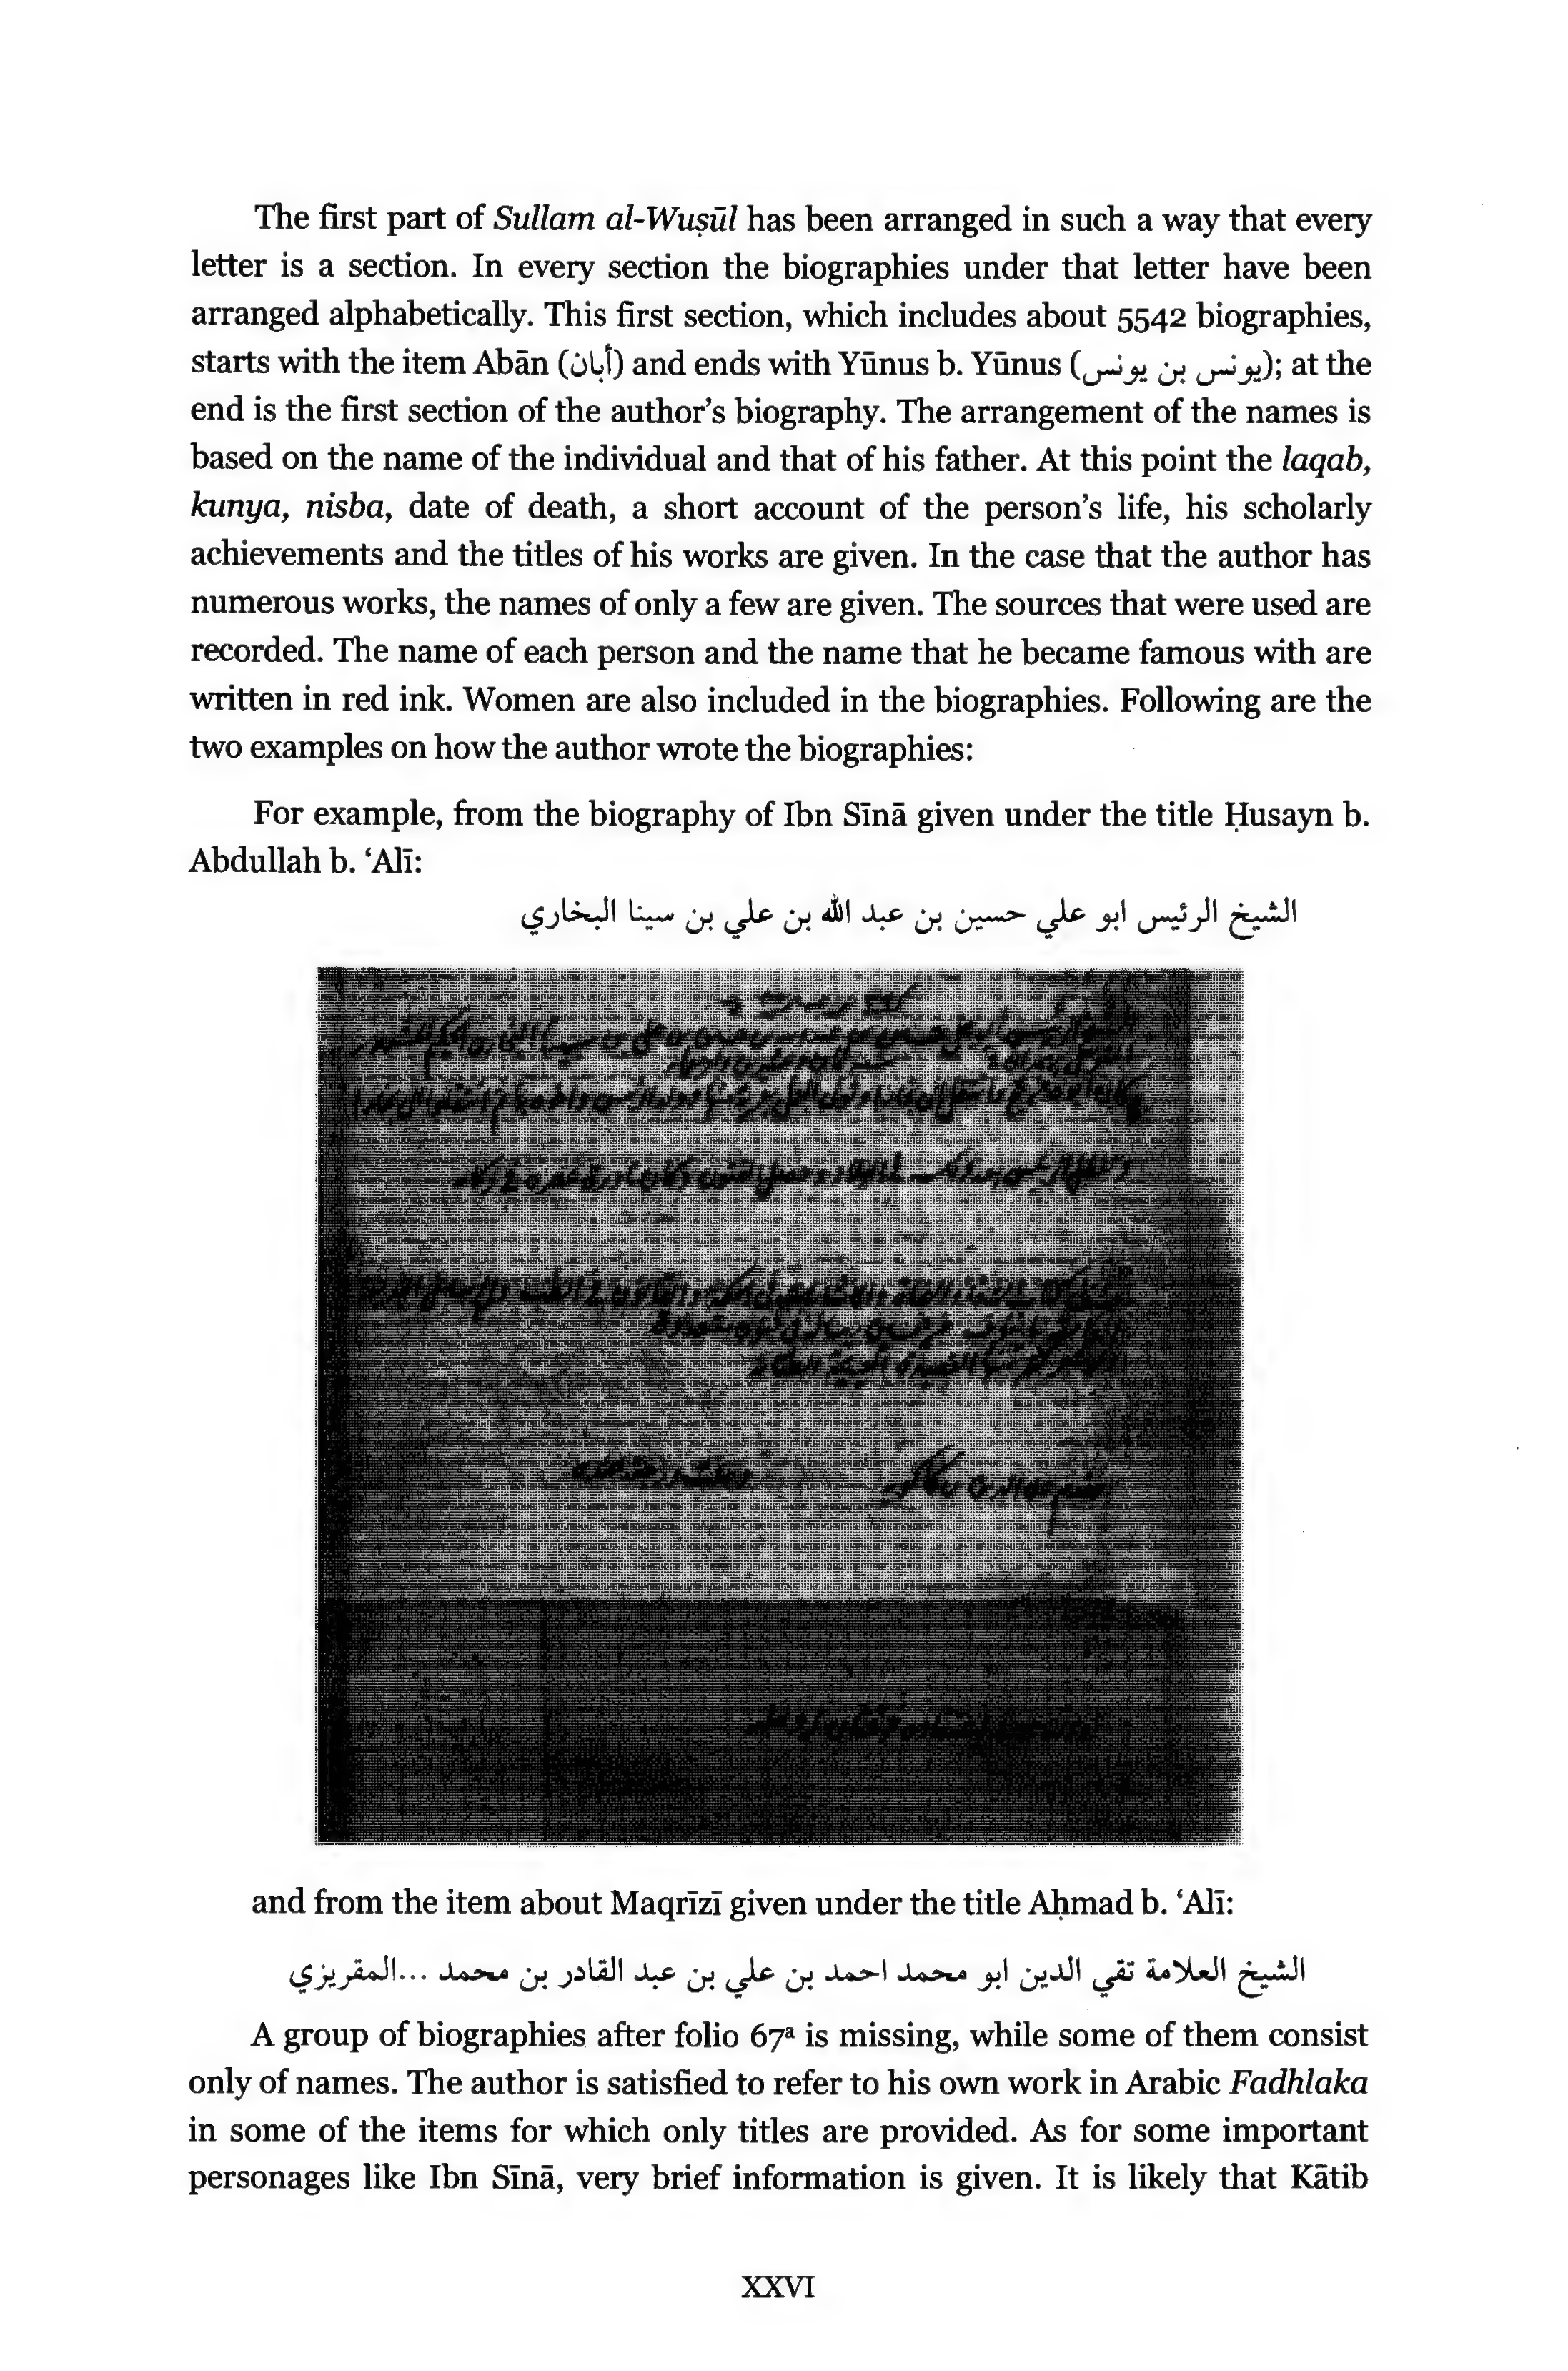 The first part of Sullam al-Wuṣūl has been arranged in such a way that every
letter is a section. In every section the biographies under that letter have been
arranged alphabetically. This first section, which includes about 5542 biographies,
starts with the item Abān (أبان) and ends with Yūnus b. Yūnus (يونس بن يونس); at the
end is the first section of the author’s biography. The arrangement of the names is
based on the name of the individual and that of his father. At this point the laqab,
kunya, nisba, date of death, a short account of the person’s life, his scholarly
achievements and the titles of his works are given. In the case that the author has
numerous works, the names of only a few are given. The sources that were used are
recorded. The name of each person and the name that he became famous with are
written in red ink. Women are also included in the biographies. Following are the
two examples on how the author wrote the biographies:
For example, from the biography of Ibn Sīnā given under the title Ḥusayn b.
Abdullah b. ‘Alī:
الشيخ الرئيس ابو علي حسين بن عبد الله بن علي بن سينا البخاري
and from the item about Maqrīzī given under the title Aḥmad b. ‘Alī:
الشيخ العلامة تقي الدين ابو محمد احمد بن علي بن عبد القادر بن محمد ...المقريزي
A group of biographies after folio 67ª is missing, while some of them consist
only of names. The author is satisfied to refer to his own work in Arabic Fadhlaka
in some of the items for which only titles are provided. As for some important
personages like Ibn Sīnā, very brief information is given. It is likely that Kātib
XXVI